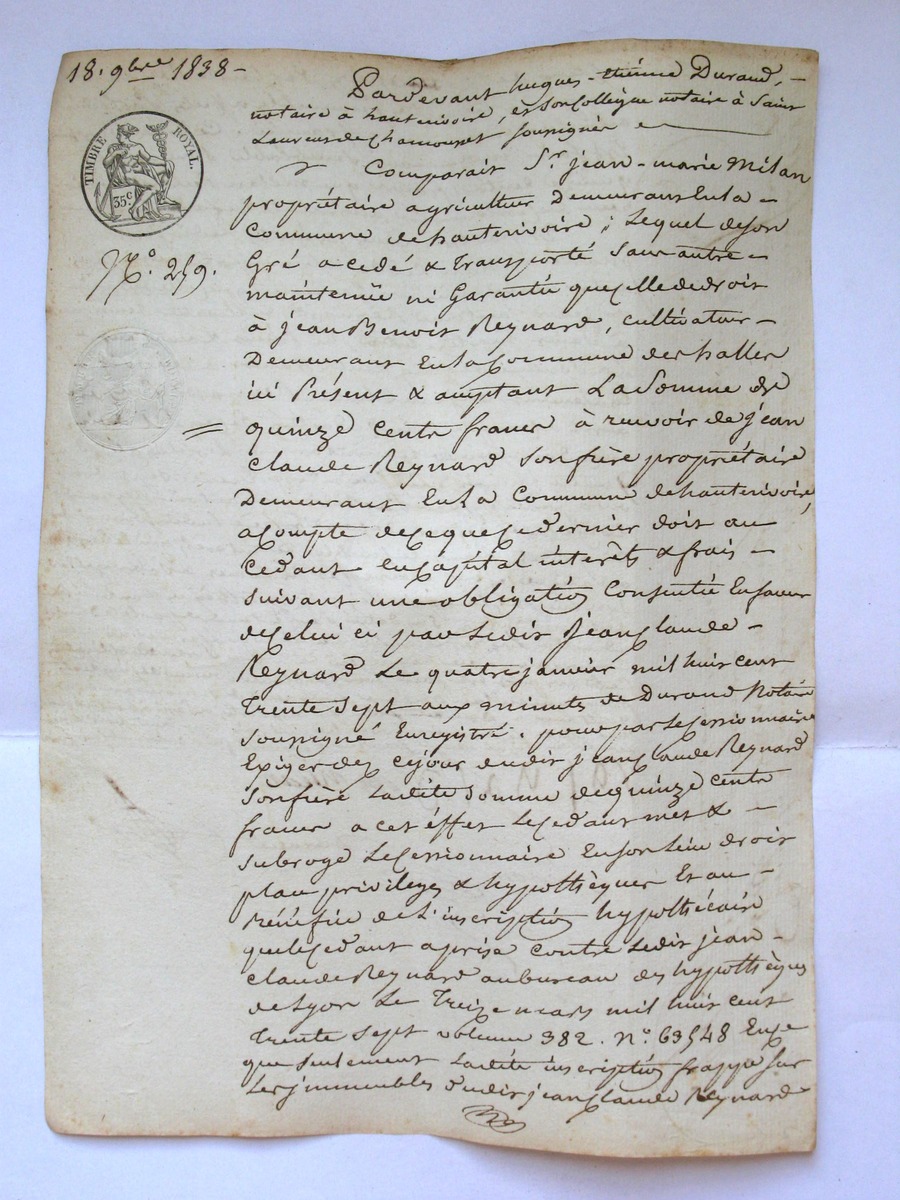 18. 9bre 1838 -
TIMBRE ROYAL.
35c
No. 259.
Pardevant hugues - etiénne Durand, -
notaire à hauterivoire, et son Collègue notaire à Saint
Laurent de Chamousset soussignés
Comparait Sr. jean - marie Milan
propriétaire agriculteur Demeurant En la -
Commune de hauterivoire ; Lequel de son
Gré a cedé & transporté Sans autre -
maintenüe ni Garantie que celle de droit
à jean Benoit Reynard, cultivateur -
Demeurant En la Commune des halles
ici Présent & acceptant La Somme de
quinze cents francs à recevoir de jean
claude Reynard Son frère propriétaire
Demeurant En La Commune de hauterivoire,
a Compte de ce que ce dernier doit au
Cedant en Capital intérêts & frais -
suivant une obligation Consentie En faveur
de Celui ci par Ledit Jean Claude -
Reynard Le quatre janvier mil huit cent
Trente Sept aux minutes de Durand Notaire
Soussigné Enregistré. pour par Le Cessionnaire
Exiger dez cejour dudit jean Claude Reynard
Son frère Ladite Somme de quinze cents
francs a cet éffet Le Cedant met & -
subroge Le Cessionnaire En son Lieu droit
place privileges & hypothèques Et au -
Bénéfice de L'inscription hypothécaire
que le Cedant a prise contre Ledit jean -
claude Reynard au bureau des hypothèques
de Lyon Le Treize mars mil huit cent
Trente Sept volume 382. No. 63548 En ce
que seulement Ladite inscription frappe sur
Les jmmeubles dudit jean Claude Reynard